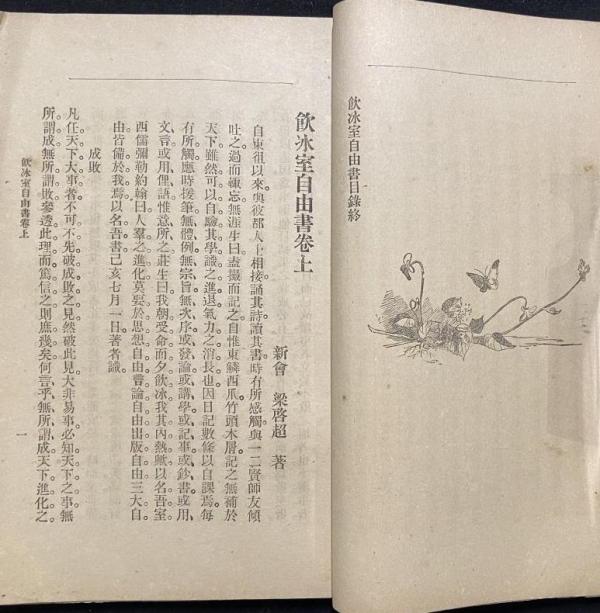 飲冰室自由書目錄終
飲冰室自由書卷上
新會 梁啓超 著
自東徂以來與彼都人士相接誦其詩讀其書時有所感觸與一二賢師友傾
吐之過而輒忘無涯生曰盍最而記之自惟東鱗西爪竹頭木屑記之無補於
天下雖然可以自驗其學識之進退氣力之消長也因日記數條以自課焉每
有所觸應時援筆無體例無宗旨無次序或發論或講學或記事或鈔書或用
文言或用俚語惟意所之莊生曰我朝受命而夕飲冰我其內熱歟以名吾室
西儒彌勒約翰曰人羣之進化莫要於思想自由言論自由出版自由三大自
由皆備於我焉以名吾書己亥七月一日著者識
成敗
凡任天下大事者不可不先破成敗之見然破此見大非易事必知天下之事無
所謂成無所謂敗參透此理而篤信之則庶幾矣何言乎無所謂成天下進化之
飲冰室自由書卷上
一